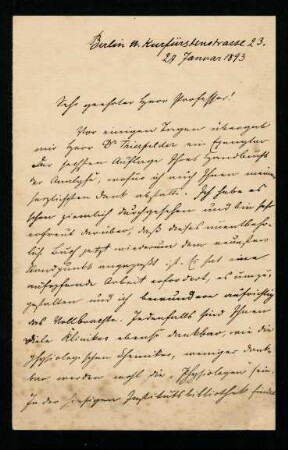 Berlin W. Kurfürstenstrasse 23.
29 Januar 1893
Sehr geehrter Herr Professor!
Vor einigen Tagen übergab
mir Herr Dr Thierfelder ein Exemplar
der sechsten Auflage Ihres Handbuchs
der Analyse, wofür ich auch Ihnen meinen
herzlichsten Dank abstatte. Ich habe es
schon ziemlich durchgesehen und bin sehr
erfreut darüber, dass dieses unentbehr-
liche Buch jetzt wiederum dem neuesten
Standpunkt angepasst ist. Es hat eine
aufopfernde Arbeit erfordert, es umzu-
gestalten und ich bewundere aufrichtig
das Vollbrachte. Jedenfalls sind Ihnen
viele Kliniker ebenso dankbar, wie die
physiologischen Chemiker, weniger dank-
bar werden wohl die Physiologen sein.
In der hiesigen Institutsbibliothek findet